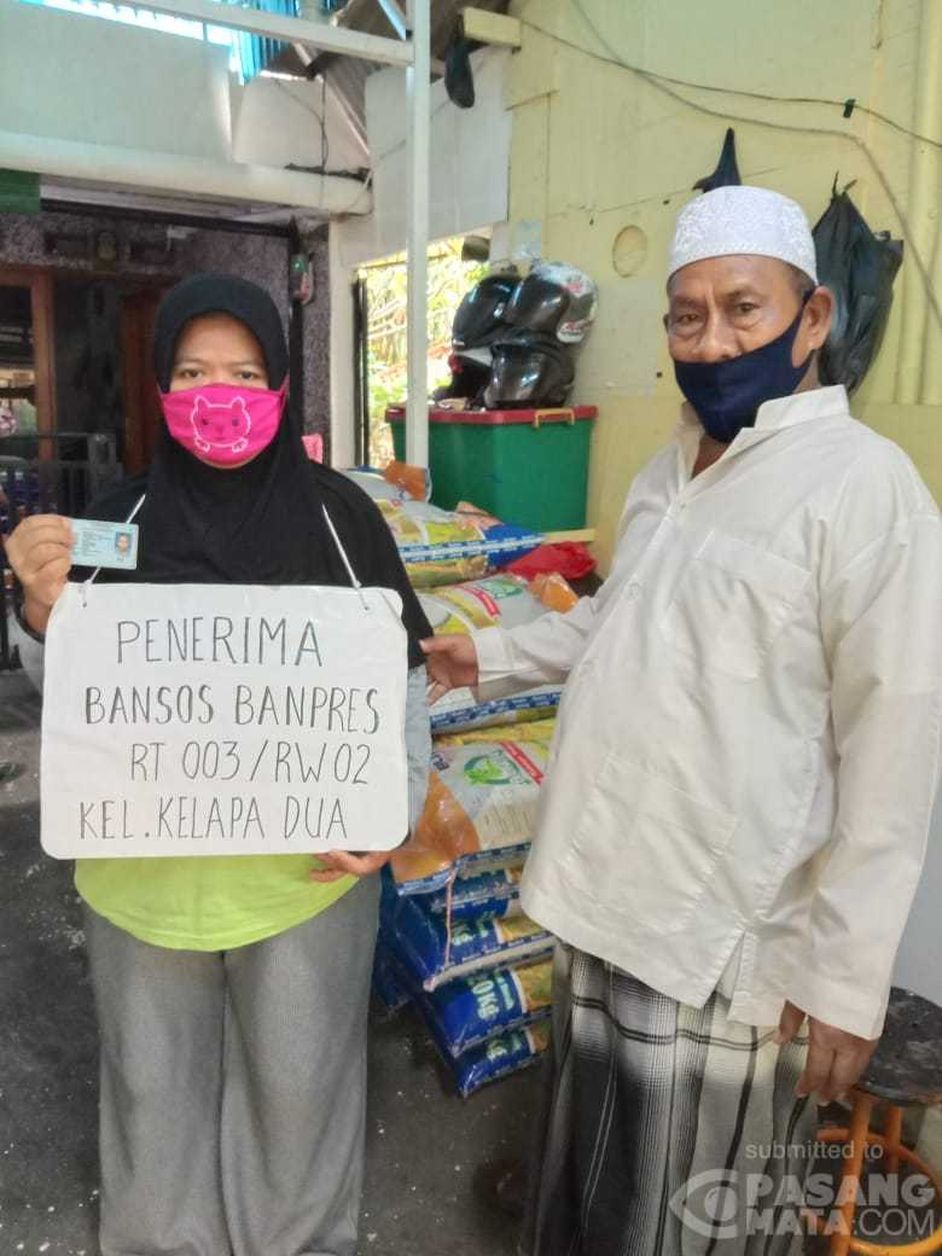 PENERIMA
BANSOS BANPRES
RT 003/RW02
KEL. KELAPA DUA
20Kg
submitted to
PASANG
MATA.COM